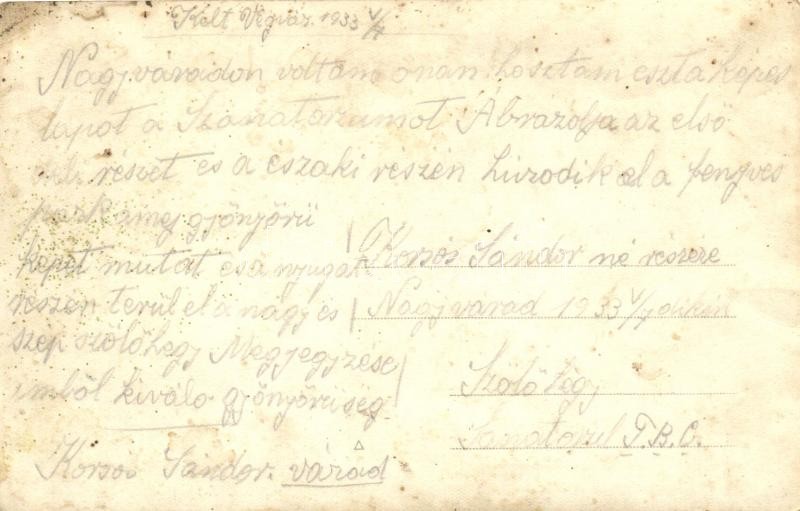 Kelt Végvár 1933 V/7
Nagyváradon voltam onan hosztam eszta képes
lapot a Szanatoriumot Ábrázolja az elsö
részét es a északi részén húzodik el a fenyves
park amej gyönyörü
képet mutat es a nyugati
részen terül el a nagy es
szép szölöhegy Megjegyzése
imböl kiváló gyönyörüség
Korsós Sándor. várad
Korsós Sándor né részére
Nagyvárad 1933 V/7 dikén
Szölö hegy
Sanatoriul T.B.C.